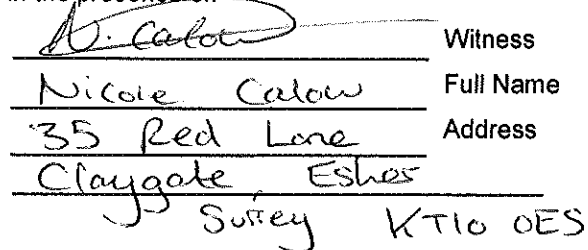 in the presence of:
N. Calow Witness
Nicole Calow Full Name
35 Red Lane Address
Claygate Esher
Surrey KT10 0ES